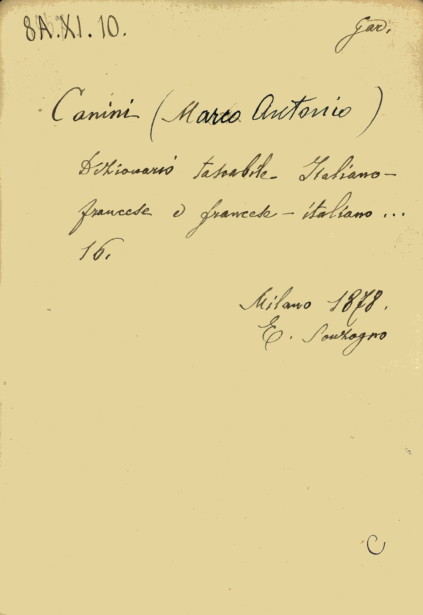 8A.XI.10.
Gar.
Canini (Marco Antonio)
Dizionario tascabile Italiano-
francese e francese-italiano...
16.
Milano 1878.
E. Sonzogno
C